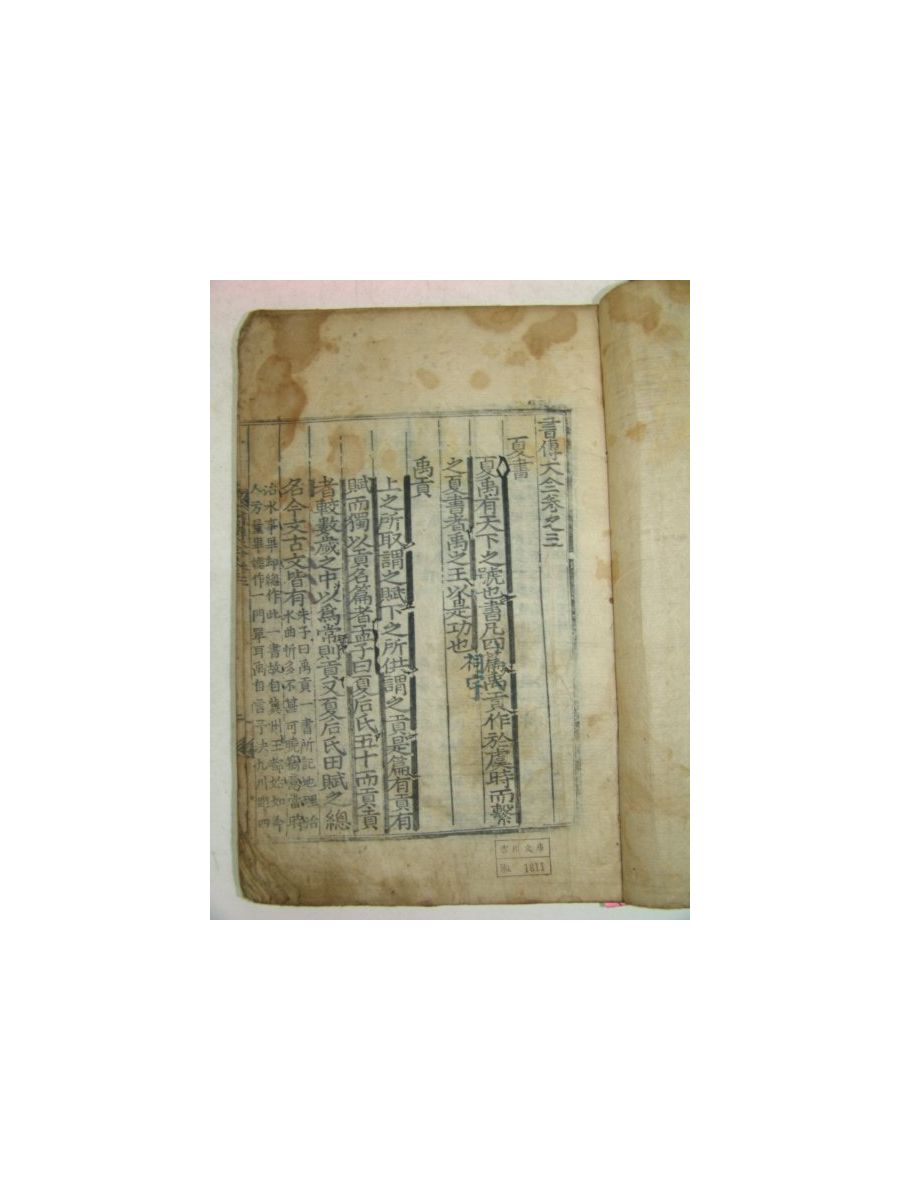 書傳大全卷之三
夏書
夏禹有天下之號也書凡四篇禹貢作於虞時而繫
之夏書者禹之王以是功也
禹貢
上之所取謂之賦下之所供謂之貢是篇有貢有
賦而獨以貢名篇者孟子曰夏后氏五十而貢貢
者較數歲之中以爲常則貢又夏后氏田賦之總
名今文古文皆有
朱子曰禹貢一書所記地理治
水曲折多不甚可曉當時
治水事畢却總作此一書故自冀州王都始如今
人方量畢總作一門單耳禹自言予決九川距四
1811